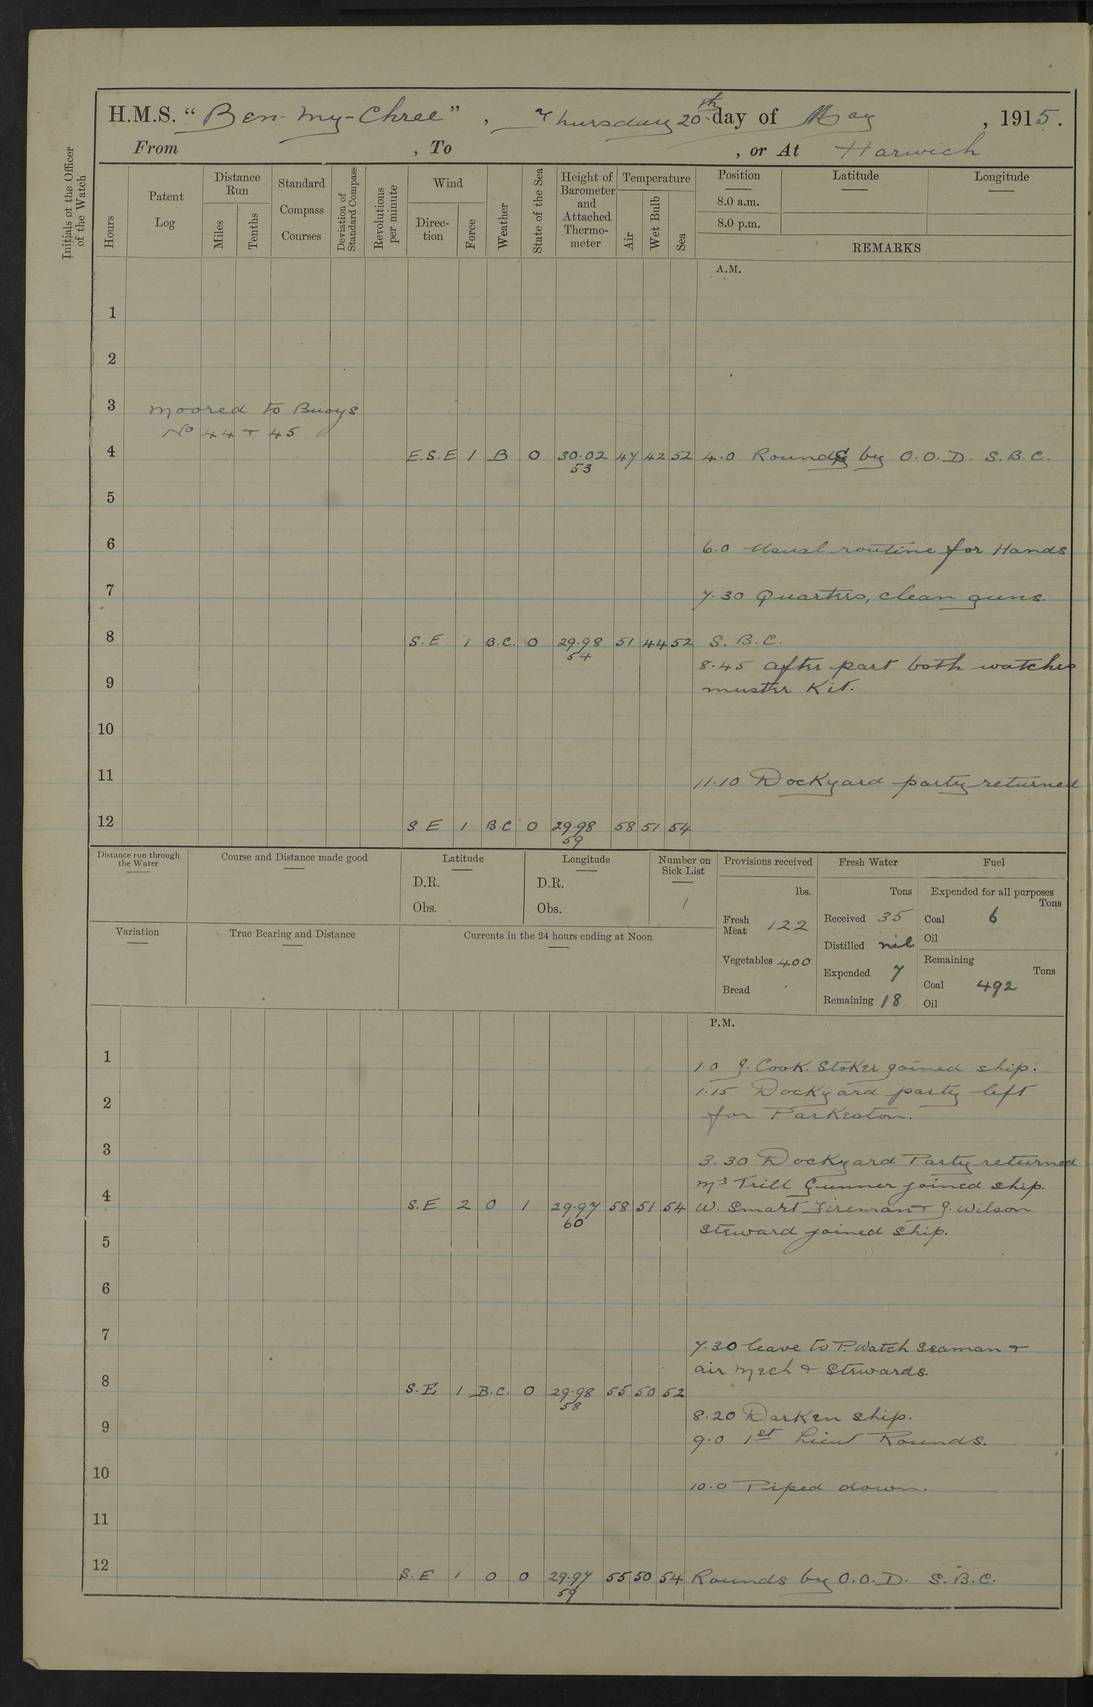 H.M.S. "Ben-my-Chree", Thursday 20th day of May, 1915.
From , To , or At Harwich
Initials of the Officer of the Watch
Hours
Patent Log
Distance Run
Miles
Tenths
Standard Compass Courses
Deviation of Standard Compass
Revolutions per minute
Wind
Direction
Force
Weather
State of the Sea
Height of Barometer and Attached Thermometer
Temperature
Air
Wet Bulb
Sea
Position Latitude Longitude
8.0 a.m.
8.0 p.m.
REMARKS
A.M.
1
2
3 Moored to Buoys
No 44 + 45
4 E.S.E 1 B 0 30.02 47 42 52 4.0 Rounds by O.O.D. S.B.C.
53
5
6 6.0 Usual routine for Hands
7 7.30 Quarters, clean guns.
8 S.E 1 B.C. 0 29.98 51 44 52 S.B.C.
54
8.45 after part both watches
9 muster Kit.
10
11 11.10 Dockyard party returned
12 S E 1 B C 0 29.98 58 51 54
59
Distance run through the Water
Course and Distance made good
Latitude
D.R.
Obs.
Longitude
D.R.
Obs.
Number on Sick List
1
Variation
True Bearing and Distance
Currents in the 24 hours ending at Noon
Provisions received
lbs.
Fresh Meat 122
Vegetables 400
Bread
Fresh Water
Tons
Received 35
Distilled nil
Expended 7
Remaining 18
Fuel
Expended for all purposes
Tons
Coal 6
Oil
Remaining
Tons
Coal 492
Oil
P.M.
1 1.0 J. Cook. Stoker joined ship.
1.15 Dockyard party left
2 for Parkeston.
3 3.30 Dockyard Party returned
Mr Trill Gunner joined ship.
4 S.E 2 0 1 29.97 58 51 54 W. Smart Fireman + J. Wilson
60
Steward joined ship.
5
6
7 7.30 leave to P. Watch Seaman +
air Mech + Stewards.
8 S.E 1 B.C. 0 29.98 55 50 52
58
8.20 Darken ship.
9 9.0 1st Lieut Rounds.
10 10.0 Piped down.
11
12 S.E 1 0 0 29.97 55 50 54 Rounds by O.O.D. S.B.C.
59